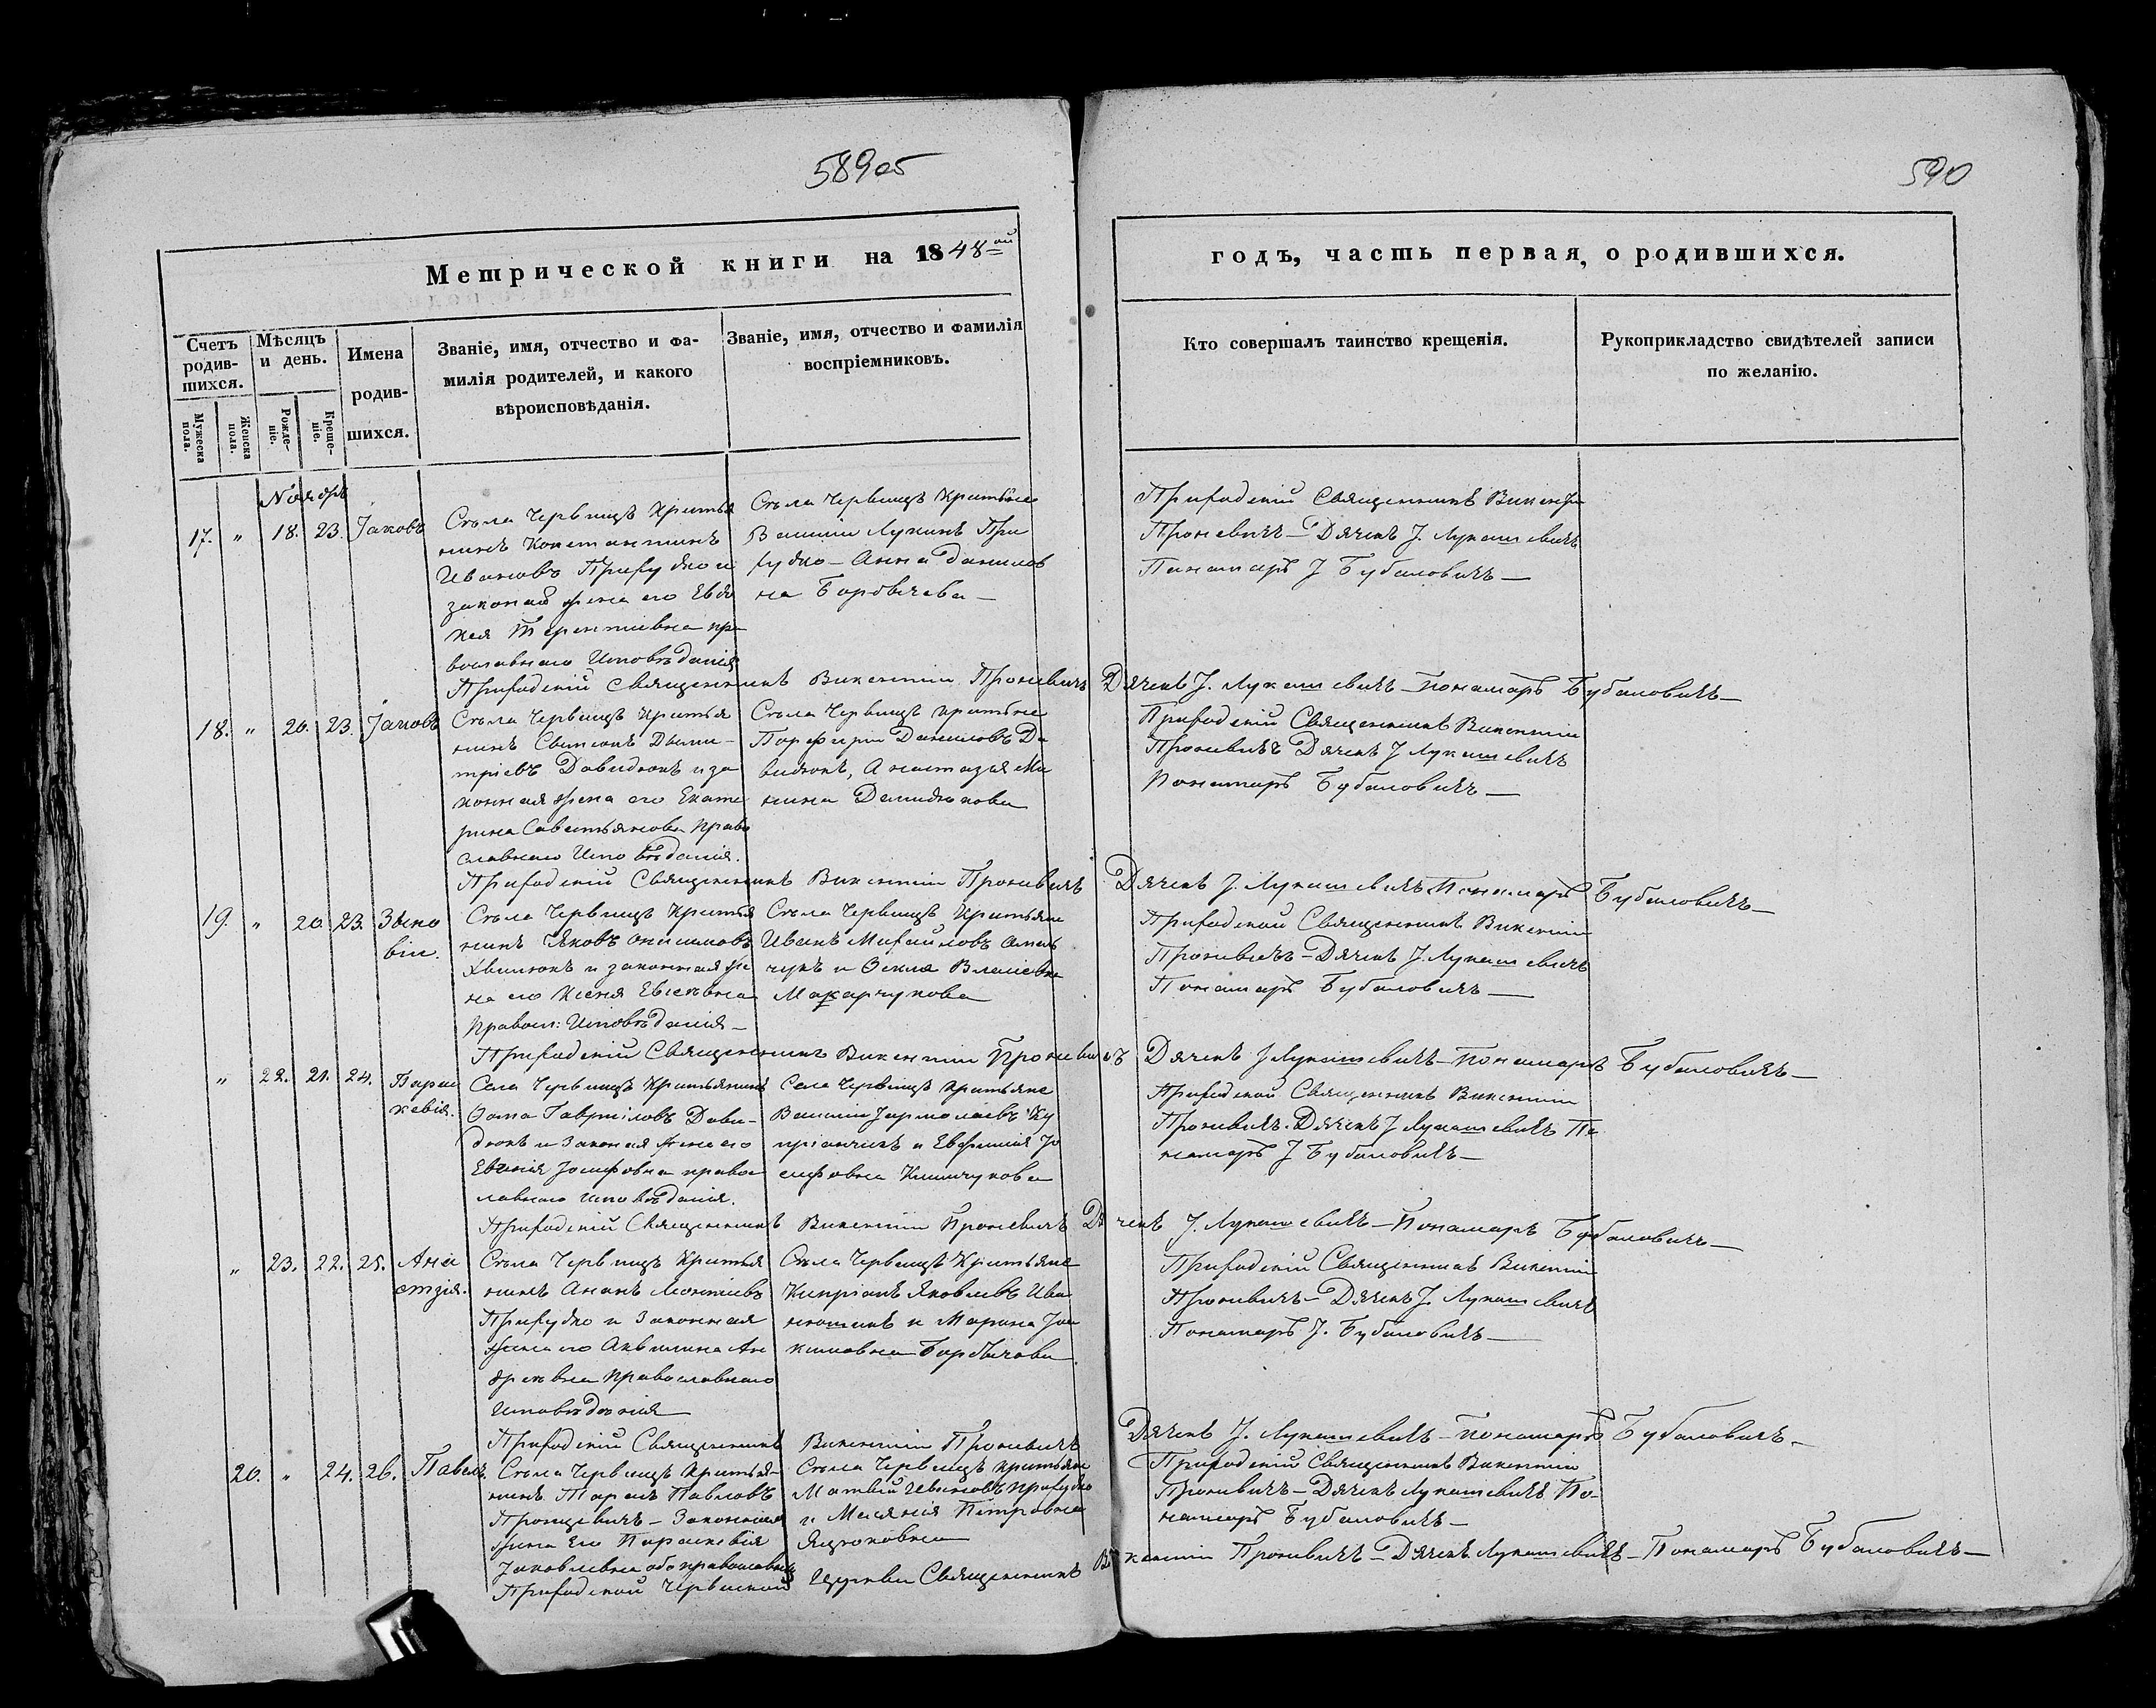 589об
590
Метрической книги на 1848ой
годъ, часть первая, о родившихся.
Счетъ родив-
шихся.
Мѣсяцъ
и день.
Имена
родив-
шихся.
Званіе, имя, отчество и фа-
милія родителей, и какого
вѣроисповѣданія.
Званіе, имя, отчество и фамилія
воспріемниковъ.
Кто совершалъ таинство крещенія.
Рукоприкладство свидѣтелей записи
по желанію.
Мужеска
пола.
Женска
пола.
Рожде-
ніе.
Креще-
ніе.
Ноября
17. „ 18. 23. Іаковъ
Сѣла Червищъ Кристья
нинъ Константинъ
Ивановъ Прифудко и
законая жена его Евдо
кея Терентіевна пра
вославнаго Исповѣданія
Сѣла Червищъ Кристьяне
Василій Лукинъ При
фудко – Анна Данилов
на Борбычева –
Приходскій Священникъ Викентій
Проневичъ – Дячекъ J. Лукашевичъ
Панамарь J Бубановичъ —
Приходскій священникъ Викентій Проневичъ Дячекъ J. Лукашевичъ – Понамарь Бубановичъ —
18. „ 20. 23. Іаковъ
Сѣла Червищъ Кристья
нинъ Свимонъ Дыми-
тріевъ Давидюкъ и за
конная жена его Екате
рина Савастьянова Право
славнаго Исповѣданія.
Сѣла Червищъ Кристьяне
Порфирій Даниловъ Да
видюкъ, Анастазія Ми
нина Демидюкова
Приходскій Священникъ Викентій
Проневичъ Дячекъ J Лукашевичъ
Понамарь Бубановичъ —
Приходскій Священникъ Викентій Проневичъ Дячекъ J. Лукашевичъ Понамарь Бубановичъ —
19. „ 20. 23. Зѣно
вій.
Сѣла Червищъ Кристья
нинъ Яковъ Онисимовъ
Хвилюкъ и законная же
на его Ксеня Евсеевна
Правосл: Исповѣданія –
Сѣла Червищъ Кристьяне
Иванъ Михайловъ Омель
чукъ и Ѳекла Власіевна
Макарчукова
Приходской Священникъ Викентій
Проневичъ – Дячекъ J. Лукашевичъ
Понамарь Бубановичъ —
Приходскій Священникъ Викентій Проневичъ Дячекъ J Лукашевичъ – Понамарь Бубановичъ —
„ 22. 21. 24. Парас
кевія.
Села Червищъ Кристьянинъ
Ѳома Гавриловъ Дави-
дюкъ и Законая жена его
Евгенія Іосифовна правос
лавнаго исповѣданія.
Села Червищъ Кристьяне
Василій Jармолаевъ Ку
пріянчикъ и Евфимія Jо
сифовна Климчукова
Приходской Священникъ Викентій
Проневичъ. Дячекъ J Лукашевичъ По
намарь J Бубановичъ —
Приходскій Священникъ Викентій Проневичъ Дячекъ J. Лукашевичъ – Понамарь Бубановичъ —
„ 23. 22. 25. Анас
стзія.
Сѣла Червищъ Кристья
нинъ Ананъ Леонтіевъ
Прифудко и Законная
жена его Аквилина Ан
дреевна Православнаго
Исповѣданія
Сѣла Червищъ Кристьяне
Кипріанъ Яковлевъ Ива
нюшикъ и Марина Jоа
кимовна Борбычова
Приходскій Священникъ Викентій
Проневичъ – Дячекъ J. Лукашевичъ
Понамарь J. Бубановичъ —
Приходскій Священникъ Викентій Проневичъ Дячекъ J. Лукашевичъ – Понамарь Бубановичъ –
20. „ 24. 26. Павелъ
Сѣла Червищъ Кристья-
нинъ Тарасъ Павловъ
Процевичъ – Законная
жена Его Параскевія
Jаковлевна обо православныхъ
Сѣла Червищъ кристьяне
Матвій Ивановъ Прифудко
и Меланія Петровна
Яцюковна
Приходскій Священникъ Викентій
Проневичъ – Дячекъ Лукашевичъ По-
намарь Бубановичъ –
Приходской Червиской Церкви Священникъ Викентій Проневичъ – Дячекъ Лукашевичъ – Понамарь Бубановичъ —